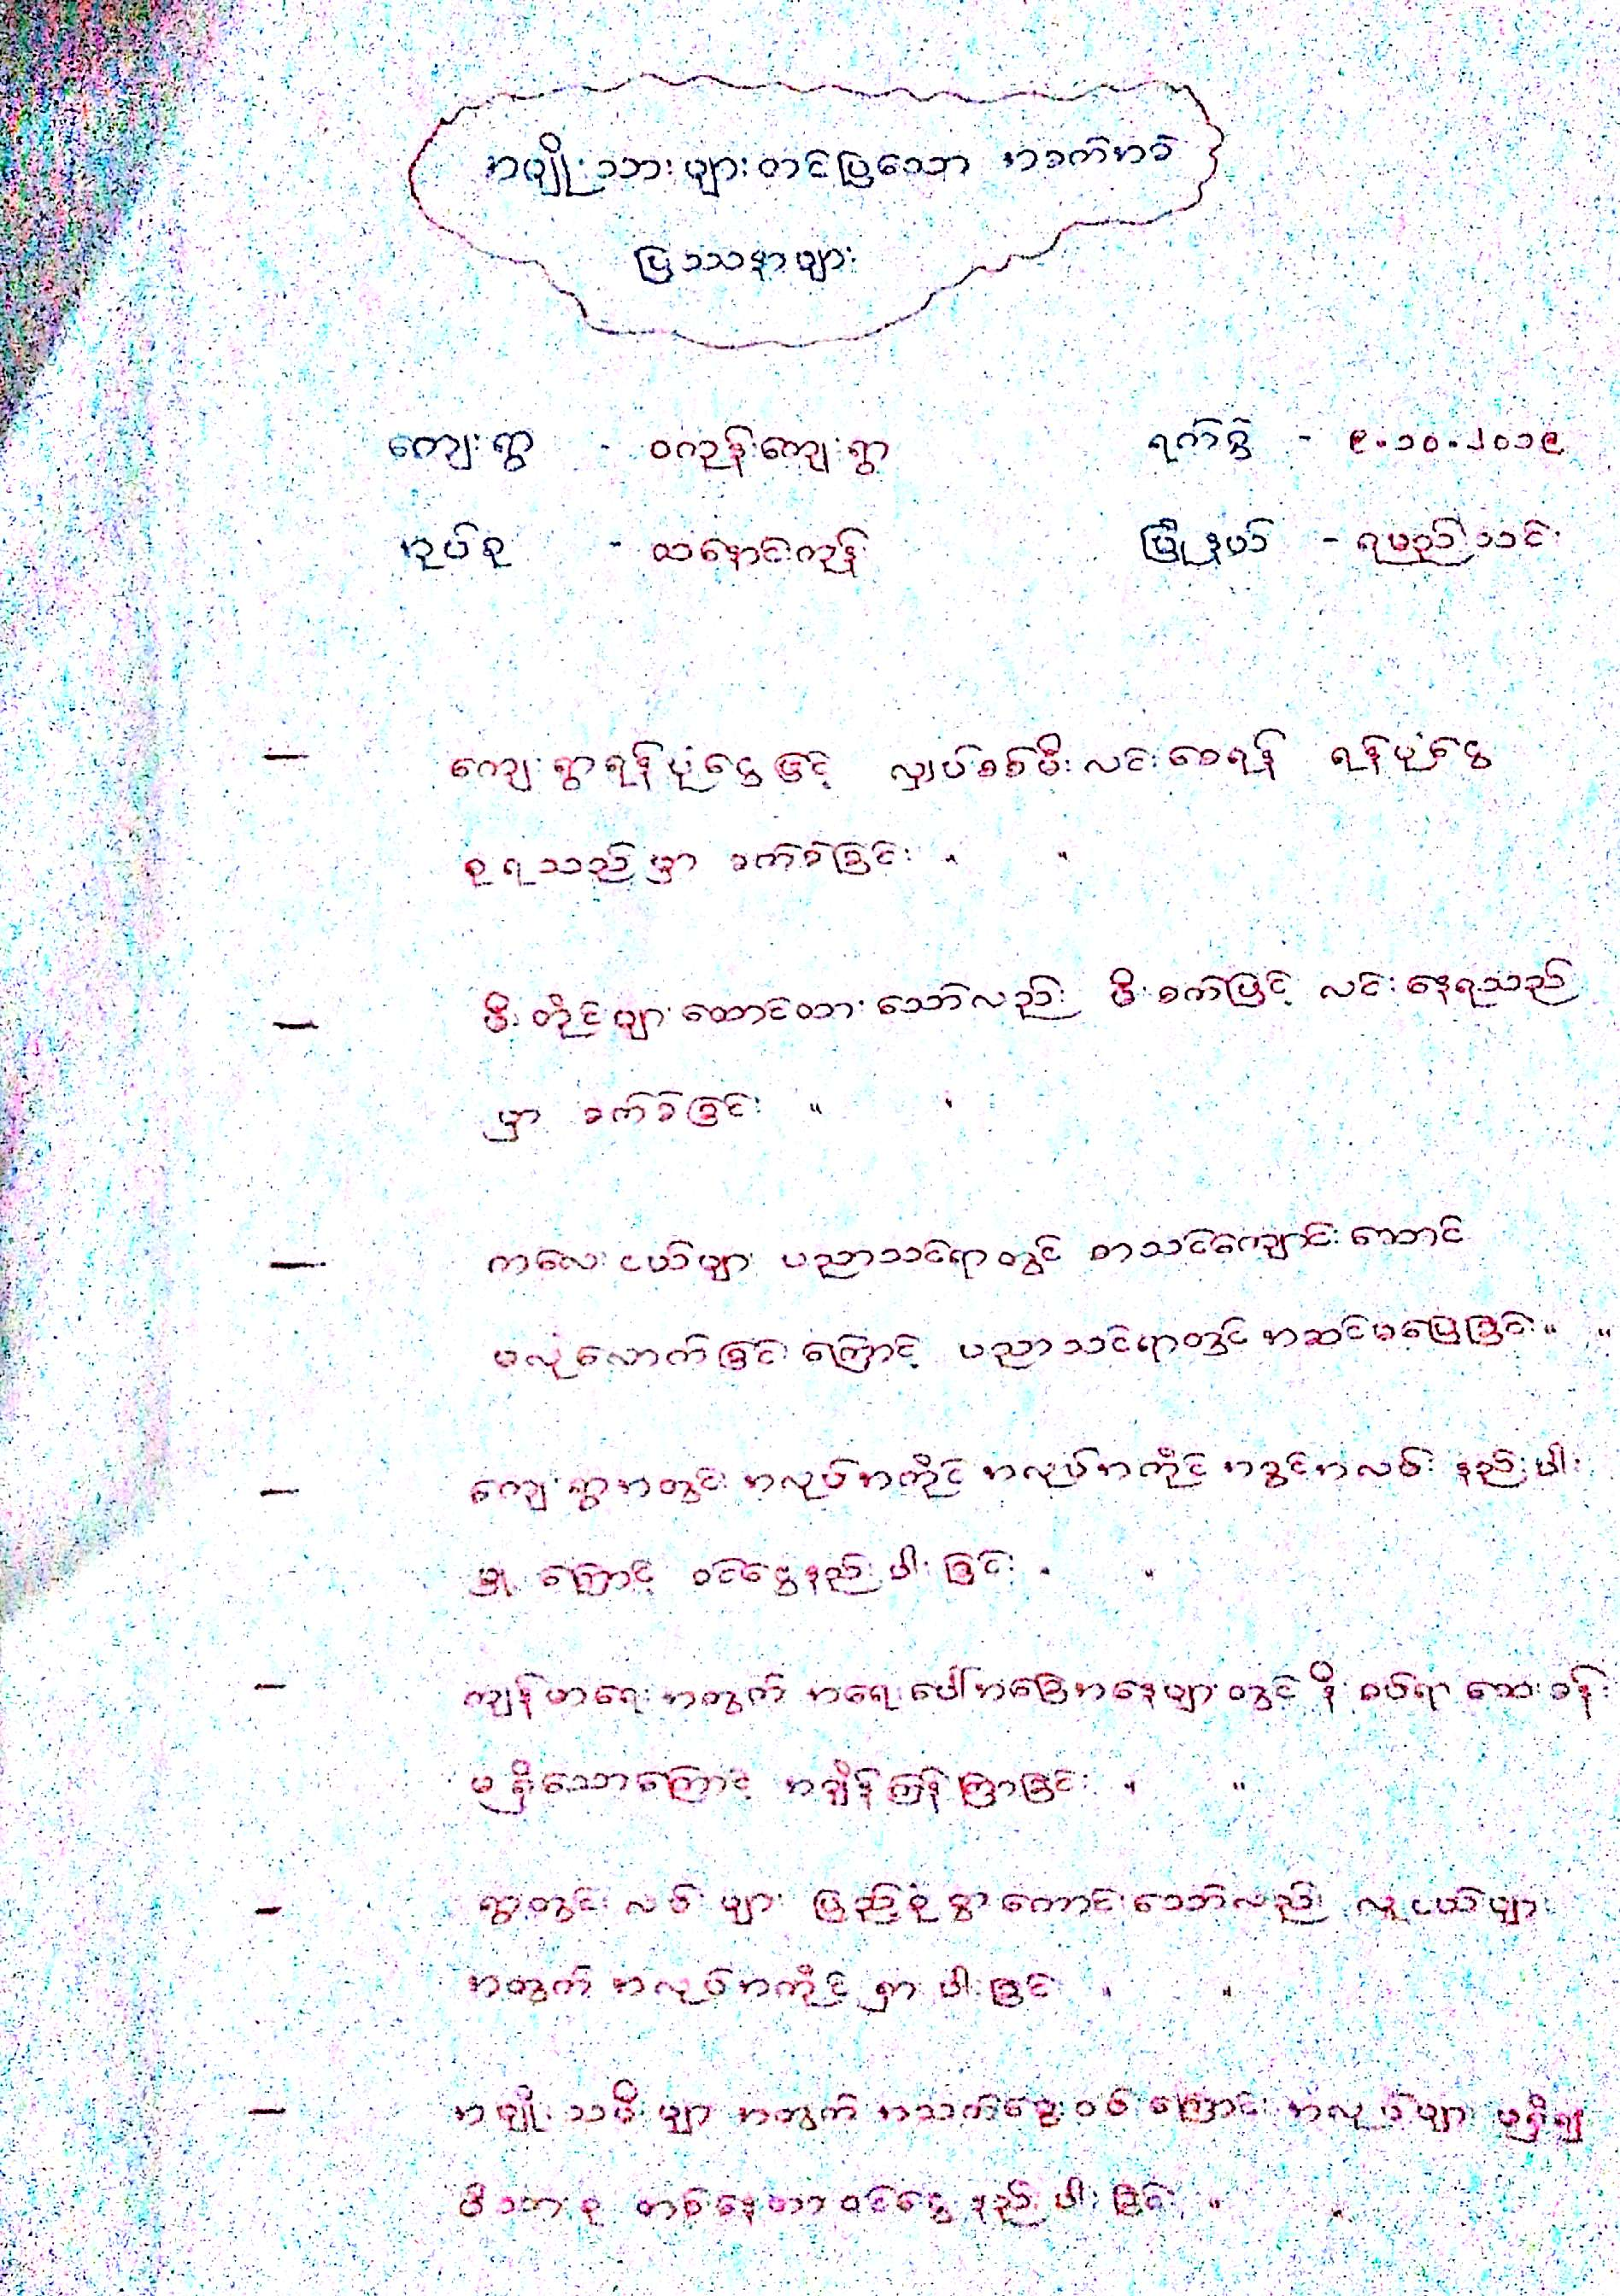 အမျိုးသားများတင်ပြသော အခက်အခဲ
ပြဿနာများ
ကျေးရွာ - ဝကုန်းကျေးရွာ ရက်စွဲ - ၉.၁၀.၂၀၁၉
အုပ်စု - ထနောင်းကုန်း မြို့နယ် - ရမည်းသင်း
— ကျေးရွာရန်ပုံငွေဖြင့် လျှပ်စစ်မီးလင်းစေရန် ရန်ပုံငွေ
စုရသည်မှာ ခက်ခဲခြင်း " "
— မီးတိုင်များထောင်ထားသော်လည်း မီးစက်ဖြင့် လင်းနေရသည်
မှာ ခက်ခဲခြင်း " "
— ကလေးငယ်များ ပညာသင်ရာတွင် စာသင်ကျောင်းဆောင်
မလုံလောက်ခြင်းကြောင့် ပညာသင်ရာတွင် အဆင်မပြေခြင်း " "
— ကျေးရွာအတွင်း အလုပ်အကိုင် အလုပ်အကိုင် အခွင့်အလမ်း နည်းပါး
မှုကြောင့် ဝင်ငွေနည်းပါးခြင်း " "
— ကျန်းမာရေးအတွက် အရေးပေါ်အခြေအနေများတွင် နီးစပ်ရာ ဆေးခန်း
မရှိသောကြောင့် အချိန်ကြန့်ကြာခြင်း " "
— ရွာတွင်းလမ်းများ ပြည့်စုံစွာကောင်းသော်လည်း လူငယ်များ
အတွက် အလုပ်အကိုင် ရှားပါးခြင်း " "
— အမျိုးသမီးများအတွက် အသက်မွေးဝမ်းကြောင်း အလုပ်များ မရှိ၍
မိသားစု တစ်နေ့တာဝင်ငွေ နည်းပါးခြင်း " "